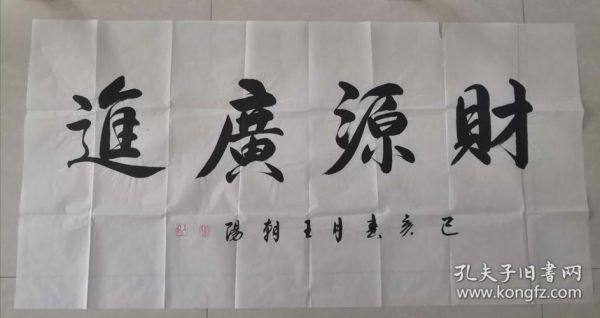 財源廣進
己亥春月王朝陽
孔夫子旧書网
www.kongfz.com